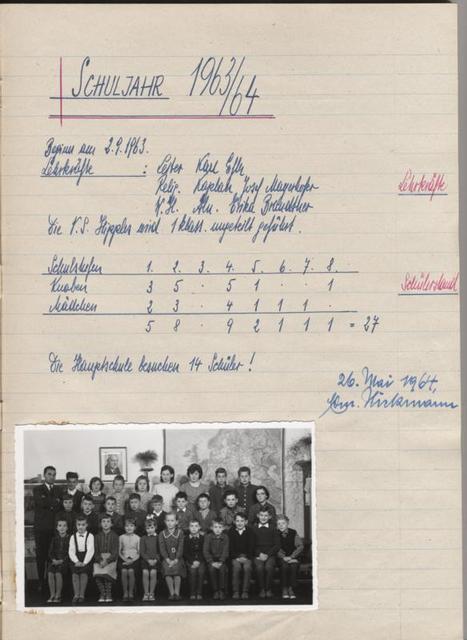 SCHULJAHR 1963/64
Beginn am 2.9.1963.
Lehrkräfte : Lehrer Karl
Relig. Kaplan Josef Mayrhofer
V.H. Aln. Erika Brandtner
Die V.S. wird 1 klass. ungeteilt geführt.
Lehrkräfte
Schulstufen 1. 2. 3. 4. 5. 6. 7. 8.
Knaben 3 5 . 5 1 . . 1
Mädchen 2 3 . 4 1 1 1 .
5 8 . 9 2 1 1 1 = 27
Schülerstand
Die Hauptschule besuchen 14 Schüler!
26. Mai 1964,